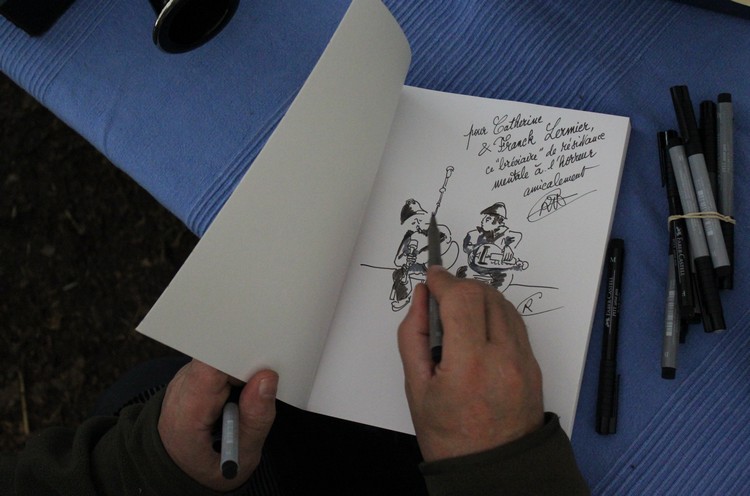 pour Catherine
& Franck Lermier,
ce "bréviaire" de résistance
mentale à l'horreur
amicalement
R
FABER-CASTELL